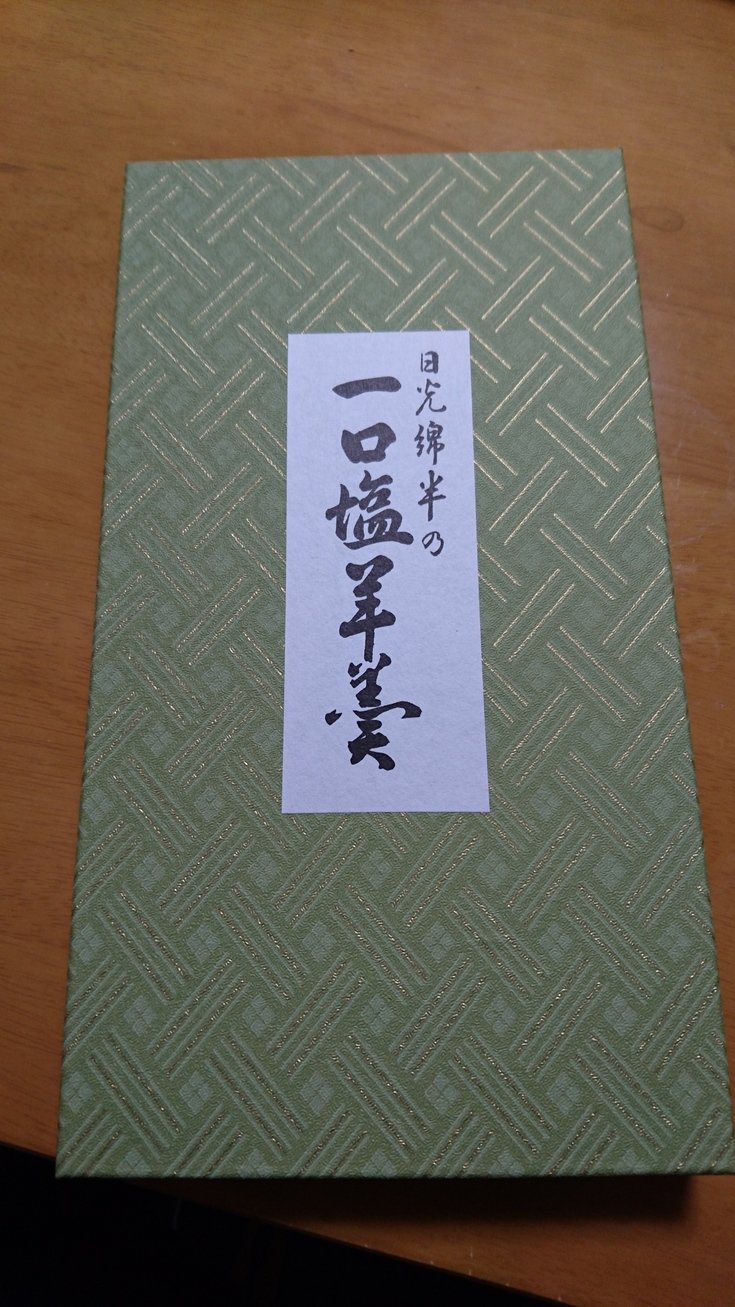 日光綿半の
一口塩羊羹